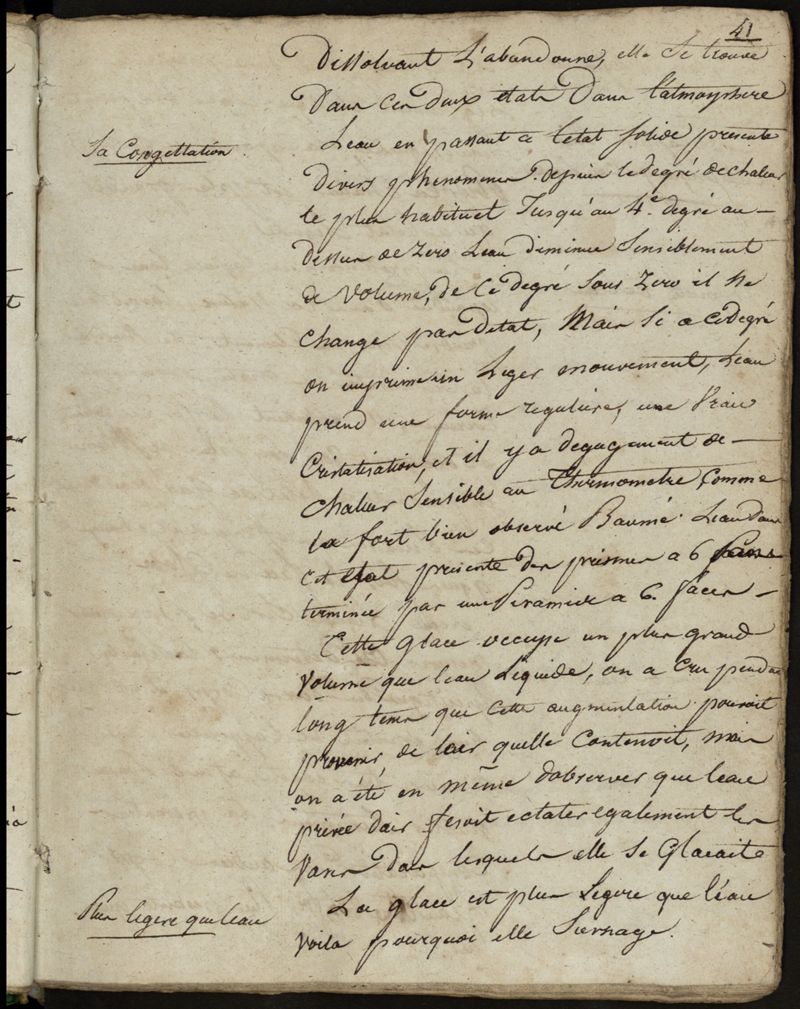 41
Dissolvant L'abandonne, elle Se trouve
Dans Ces Deux etats Dans l'atmosphere
Sa Congellation.
Leau en passant a letat solide presente
Divers phenomenes. depuis le degré de chaleur
le plus habituel Jusqu'au 4e. degré au-
dessus de Zero Leau diminue Sensiblement
de Volume, de Ce degré Sous Zero il ne
change pas Detat, Mais Si a ce degré
on imprime un Leger mouvement, Leau
prend une forme reguliere, une Vraie
Cristalisation, et il y a degagement de
chaleur Sensible au Thermometre, Comme
la fort bien observé Baumé. Leau dans
cet etat presente des prismes a 6 faces
terminés par une Piramide a 6. faces -
Cette glace occupe un plus grand
Volume que leau Liquide, on a Cru pendant
long tems que Cette augmentation pouvoit
provenir de lair quelle Contenoit, mais
on a été en même d'observer que leau
privée dair fesoit eclater egalement les
Vases dans lesquels elle Se Glacaite
Plus legere que leau
La glace est plus Legere que léau
Voila pourquoi elle Surnage.